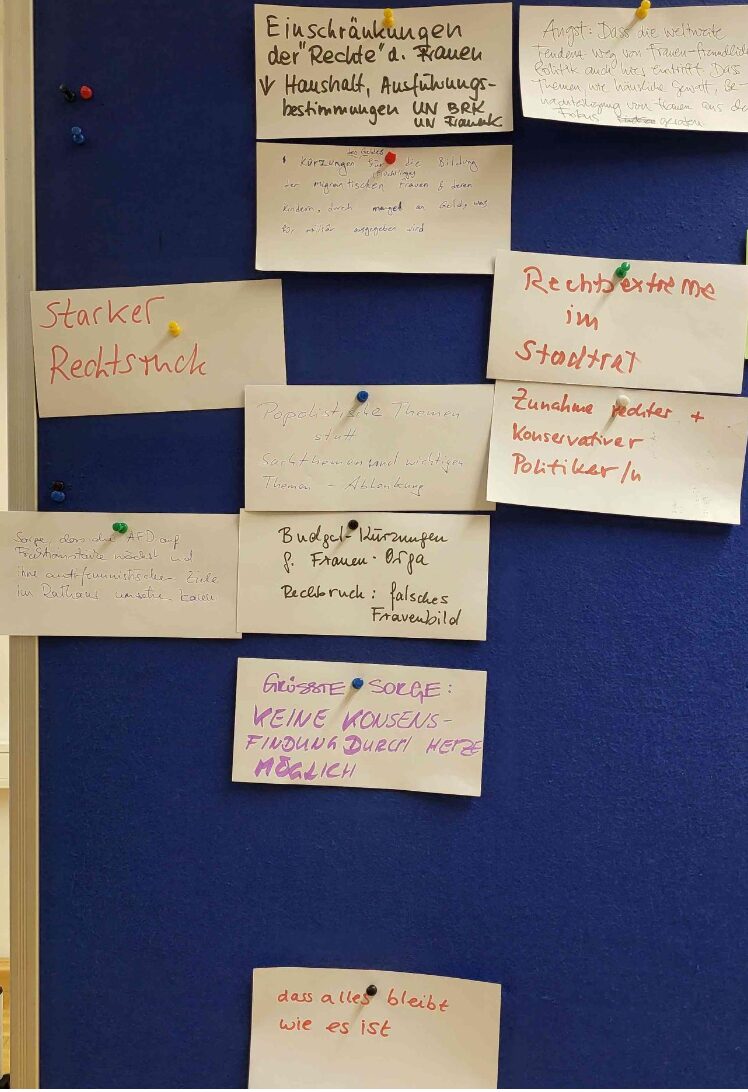 Einschränkungen
der "Rechte" d. Frauen
↓ Haushalt, Ausführungs-
bestimmungen UN BRK
UN FrauenK
Angst: Dass die weltweite
Tendenz weg von Frauen-freundlicher
Politik auch hier eintritt. Dass
Themen wie häusliche Gewalt, Be-
nachteiligung von Frauen aus dem
Fokus geraten
Kürzungen des Geldes für die Bildung
der migrantischen Frauen & deren
Kindern, durch mangel an Geld, was
für militär ausgegeben wird
Starker
Rechtsruck
Rechtsextreme
im
Stadtrat
Populistische Themen
statt
Sachthemen und wichtigen
Themen - Ablenkung
Zunahme rechter +
Konservativer
Politiker/n
Sorge, dass die AFD auf
Fraktionsstärke wächst und
ihre antifeministischen Ziele
im Rathaus umsetzen
Budget-Kürzungen
f. Frauen-Orga
Rechtsruck: falsches
Frauenbild
GRÖSSTE SORGE:
KEINE KONSENS-
FINDUNG DURCH HETZE
MÖGLICH
dass alles bleibt
wie es ist